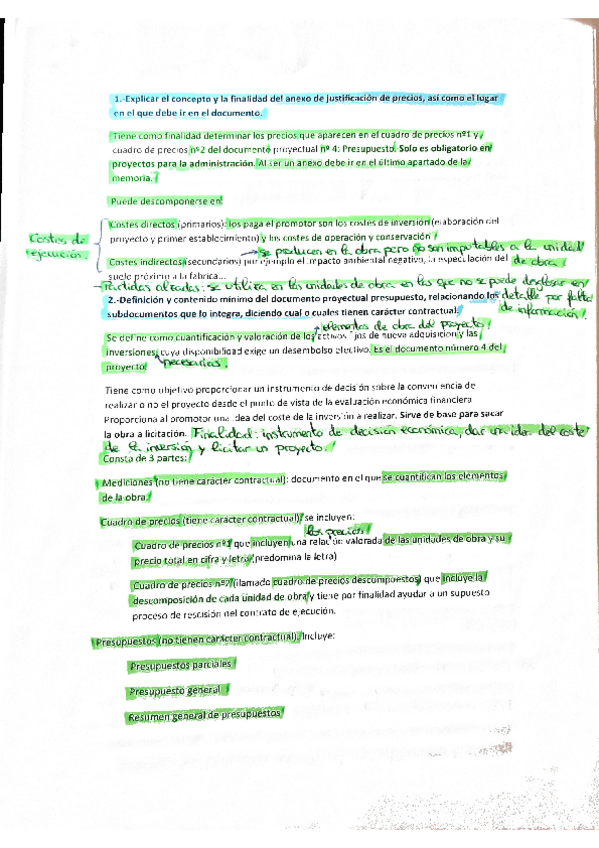 1.-Explicar el concepto y la finalidad del anexo de justificación de precios, así como el lugar
en el que debe ir en el documento.
Tiene como finalidad determinar los precios que aparecen en el cuadro de precios nº1 y
cuadro de precios nº2 del documento proyectual nº 4: Presupuesto. Solo es obligatorio en
proyectos para la administración. Al ser un anexo debe ir en el último apartado de la
memoria.
Puede descomponerse en:
Costes de ejecución
Costes directos (primarios): los paga el promotor son los costes de inversión (elaboración del
proyecto y primer establecimiento) y los costes de operación y conservación
→ se producen en la obra pero no son imputables a la unidad
de obra
Costes indirectos (secundarios) por ejemplo el impacto ambiental negativo, la especulación del
suelo próximo a la fábrica...
Partidas alzadas: se utiliza en las unidades de obra en las que no se puede desglosar en
detalle por falta
de información.
2.-Definición y contenido mínimo del documento proyectual presupuesto, relacionando los
subdocumentos que lo integra, diciendo cual o cuales tienen carácter contractual.
elementos de obra del proyecto
Se define como cuantificación y valoración de los activos fijos de nueva adquisición y las
inversiones cuya disponibilidad exige un desembolso efectivo. Es el documento número 4 del
proyecto
necesarios.
Tiene como objetivo proporcionar un instrumento de decisión sobre la conveniencia de
realizar o no el proyecto desde el punto de vista de la evaluación económica financiera
Proporciona al promotor una idea del coste de la inversión a realizar. Sirve de base para sacar
la obra a licitación. Finalidad: instrumento de decisión económica, dar un idea del coste
de la inversión y licitar un proyecto.
Consta de 3 partes:
Mediciones (no tiene carácter contractual): documento en el que se cuantifican los elementos
de la obra.
Cuadro de precios (tiene carácter contractual) se incluyen:
los precios
Cuadro de precios nº1 que incluyen una relación valorada de las unidades de obra y su
precio total en cifra y letra (predomina la letra)
Cuadro de precios nº2 (llamado cuadro de precios descompuestos) que incluye la
descomposición de cada unidad de obra y tiene por finalidad ayudar a un supuesto
proceso de rescisión del contrato de ejecución.
Presupuestos (no tienen carácter contractual). Incluye:
Presupuestos parciales
Presupuesto general
Resumen general de presupuestos